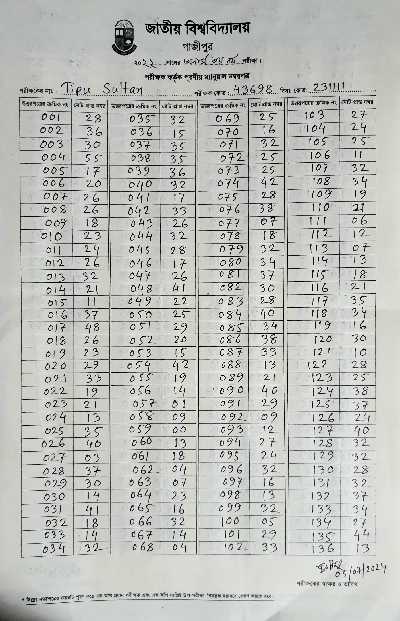 জাতীয় বিশ্ববিদ্যালয়
গাজীপুর
পরীক্ষক কর্তৃক পূরণীয় ম্যানুয়াল নম্বরপত্র
পরীক্ষকের নাম: Tipu Sultan পরীক্ষক কোড: 43698 বিষয় কোড: 231111
উত্তরপত্রের ক্রমিক নং মোট প্রাপ্ত নম্বর উত্তরপত্রের ক্রমিক নং মোট প্রাপ্ত নম্বর উত্তরপত্রের ক্রমিক নং মোট প্রাপ্ত নম্বর উত্তরপত্রের ক্রমিক নং মোট প্রাপ্ত নম্বর
001 28 035 32 069 25 103 27
002 36 036 15 070 16 104 24
003 30 037 35 071 32 105 25
004 55 038 35 072 25 106 11
005 17 039 36 073 25 107 32
006 20 040 32 074 42 108 34
007 26 041 17 075 28 109 19
008 26 042 33 076 38 110 21
009 18 043 26 077 07 111 06
010 23 044 32 078 18 112 12
011 24 045 28 079 32 113 07
012 26 046 17 080 34 114 13
013 32 047 26 081 37 115 18
014 21 048 41 082 30 116 21
015 11 049 22 083 28 117 35
016 37 050 25 084 40 118 34
017 48 051 29 085 34 119 16
018 26 052 20 086 38 120 30
019 23 053 15 087 33 121 10
020 29 054 42 088 13 122 28
021 33 055 19 089 21 123 25
022 19 056 14 090 40 124 38
023 21 057 01 091 29 125 37
024 13 058 09 092 09 126 24
025 35 059 00 093 12 127 40
026 40 060 13 094 27 128 32
027 03 061 18 095 26 129 32
028 37 062 04 096 32 130 28
029 30 063 07 097 16 131 32
030 14 064 23 098 13 132 37
031 41 065 16 099 32 133 34
032 18 066 32 100 05 134 27
033 14 067 14 101 29 135 44
034 32 068 04 102 33 136 13
05/07/2024
পরীক্ষকের স্বাক্ষর ও তারিখ